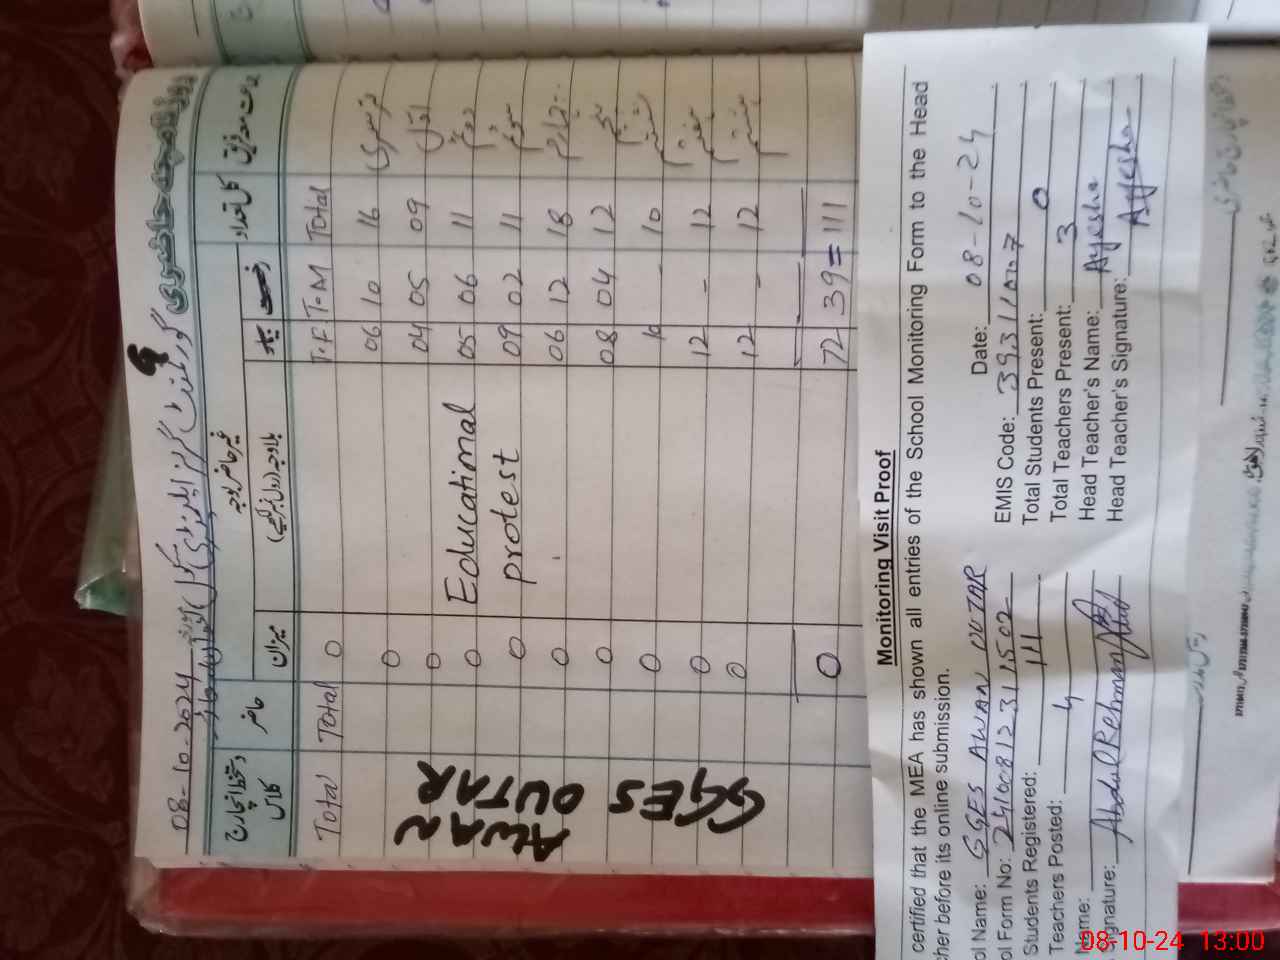 روزنامچہ حاضری
08-10-2024 گورنمنٹ گرلز ایلیمنٹری سکول
دستخط انچارج کلاس حاضر میزان غیر حاضر بوجہ بلاوجہ (رول نمبر لکھیے) بیمار رخصت کل تعداد جماعت معہ فریق
Total Total 0 T.F T.M Total
0 06 10 16 نرسری
0 04 05 09 اول
0 Educational 05 06 11 دوئم
0 protest 09 02 11 سوئم
0 06 12 18 چہارم
0 08 04 12 پنجم
0 10 - 10 ششم
0 12 - 12 ہفتم
0 12 - 12 ہشتم
0 72 39 = 111
GGES
AWAN
OUTAR
Monitoring Visit Proof
certified that the MEA has shown all entries of the School Monitoring Form to the Head
cher before its online submission.
Date: 08-10-24
ol Name: GGES AWAN OUTAR EMIS Code: 39311007
ol Form No: 24100812311502 Total Students Present: 0
Students Registered: 111 Total Teachers Present: 3
Teachers Posted: 4 Head Teacher's Name: Ayesha
Name: Abdul Rehman Head Teacher's Signature: Ayesha
Signature:
08-10-24 13:00